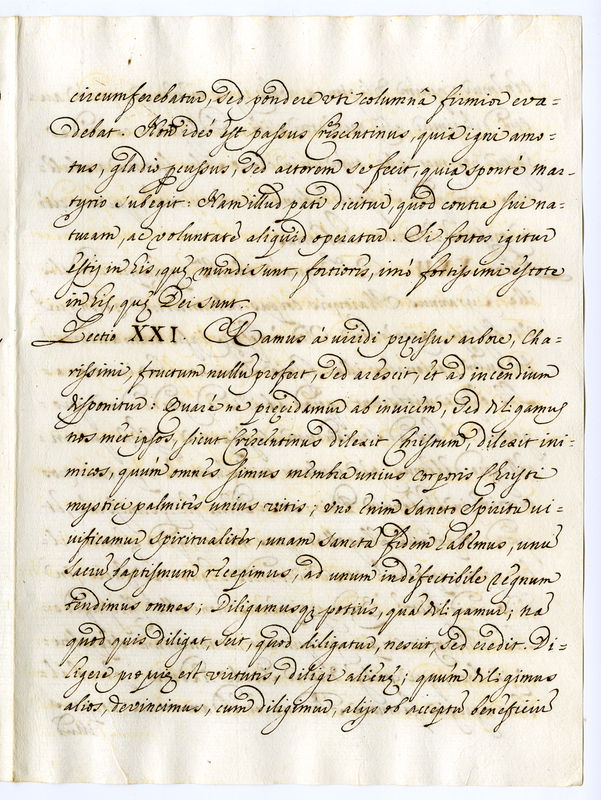 circumferebatur, sed pondere uti columnā firmior eva=
debat. Non ideó est passus Crescentinus, quia igni amo=
tus, gladio pcussus, sed actorem se fecit, quia sponté mar-
tyrio subegit: Nam illud pati dicitur, quod contra sui na=
turam, ac voluntatē aliquid operatur. Si fortes igitur
estis in eis, quę mundi sunt, fortiores, imó fortissimi estote
in eis, quę Dei sunt.
Lectio XXI. Ramus á viridi pręcisus arbore, Cha-
rissimi, fructum nullū profert, sed arescit, et ad incendium
disponitur: Quaré ne pręcidamur ab invicem, sed diligamus
nos met ipsos, sicut Crescentinus dilexit Christum, dilexit ini-
micos, quúm omnes simus membra unius corporis Christi
mystici palmites unius vitis; uno enim sancto Spiritu vi-
vificamur spiritualitér, unam sanctā fidem habemus, unū
sacrū baptismum recepimus, ad unum indefectibile regnum
tendimus omnes; Diligamusq; potiús, quā diligamur; nā
quod quis diligat, scit, quod diligatur, nescit, sed credit. Di=
ligere proprię est virtutis, diligi alienę; quúm diligimus
alios, devincimus, cum diligimur, alijs ob acceptū beneficiū